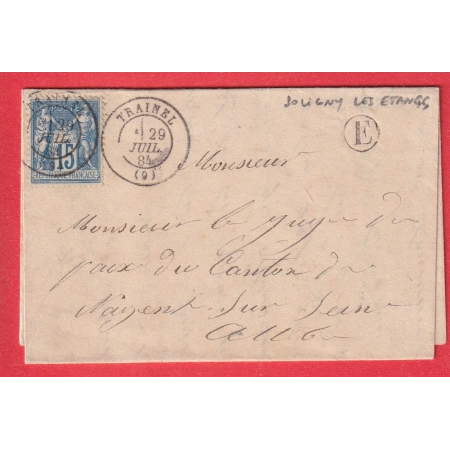 SOLIGNY LES ETANGS
29
JUIL
15
TRAINEL
29
JUIL.
84
(9)
E
Monsieur
Monsieur le juge de
paix du Canton de
Nogent sur Seine
Aube